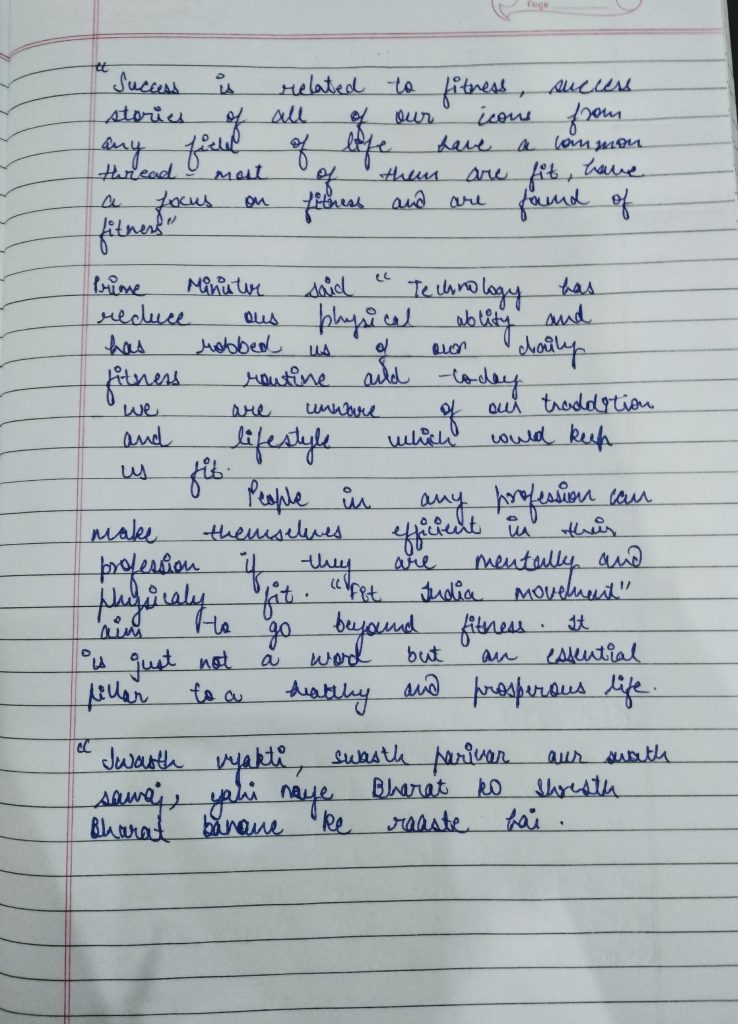 Page
"Success is related to fitness, success
stories of all of our icons from
any field of life have a common
thread - most of them are fit, have
a focus on fitness and are found of
fitness"
Prime Minister said "Technology has
reduce our physical ablity and
has robbed us of our daily
fitness routine and today
we are unware of our traddition
and lifestyle which could keep
us fit.
People in any profession can
make themselves efficient in their
profession if they are mentally and
physicaly fit. "Fit India movement"
aim to go beyound fitness. It
is just not a word but an essential
pillar to a healthy and prosperous life.
"Swasth vyakti, swasth parivar aur swath
samaj, yahi naye Bharat ko shresth
Bharat banane ke raaste hai.